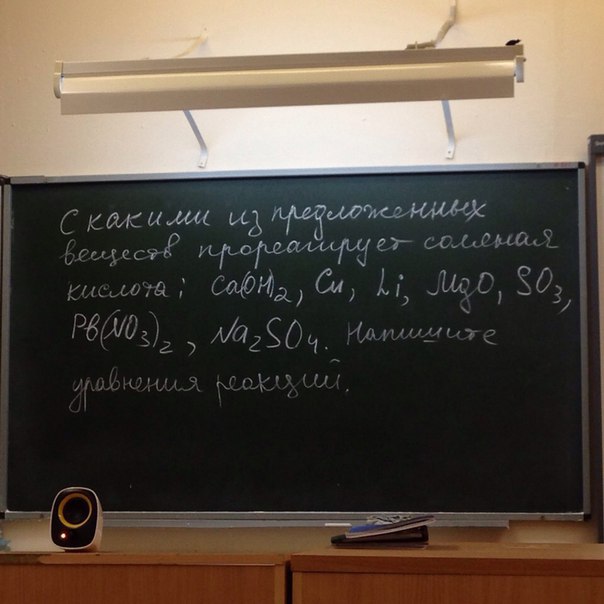 С какими из предложенных
веществ прореагирует соляная
кислота: Ca(OH)₂, Cu, Li, MgO, SO₃,
Pb(NO₃)₂, Na₂SO₄. Напишите
уравнения реакций.